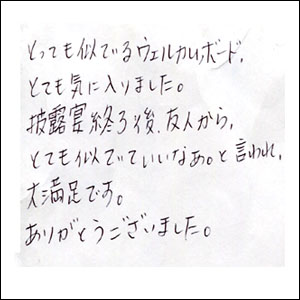 とっても似ているウェルカムボード、
とても気に入りました。
披露宴終了後、友人から、
とても似ていていいなぁ。と言われ、
大満足です。
ありがとうございました。